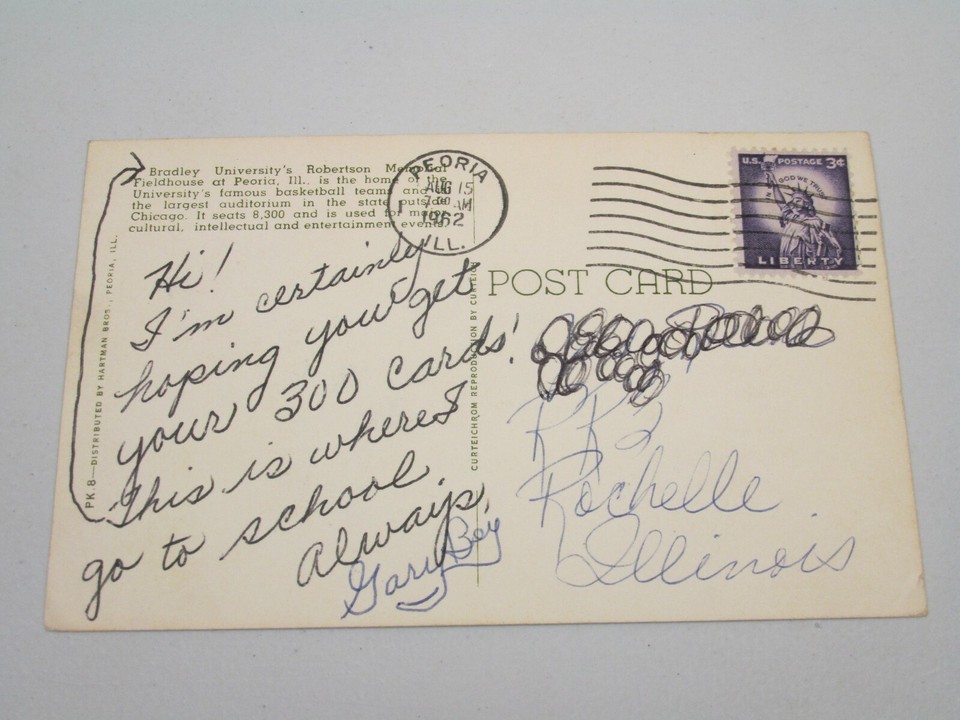 Bradley University's Robertson Memorial
Fieldhouse at Peoria, Ill., is the home of the
University's famous basketball teams and is
the largest auditorium in the state outside
Chicago. It seats 8,300 and is used for major
cultural, intellectual and entertainment events.
PK.8—DISTRIBUTED BY HARTMAN BROS., PEORIA, ILL.
Hi!
I'm certainly
hoping you get
your 300 cards!
This is where I
go to school.
Always,
Gary Boy
CURTEICHROM REPRODUCTION BY CURTEICH
PEORIA
AUG 15
AM
1962
ILL.
U.S. POSTAGE 3¢
IN GOD WE TRUST
LIBERTY
POST CARD
RR2
Rochelle
Illinois